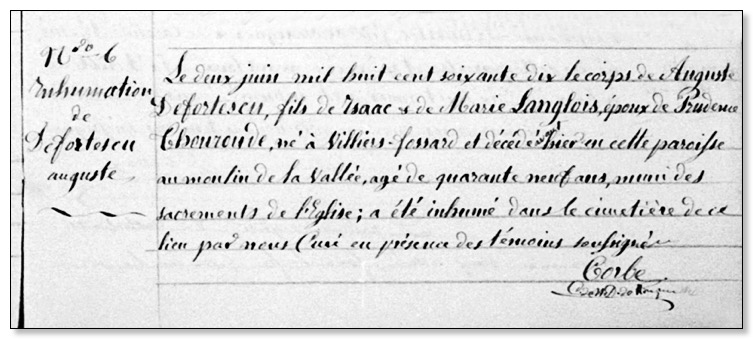 N° 6
Inhumation
de
Defortescu
auguste
Le deux juin mil huit cent soixante dix le corps de Auguste
Defortescu, fils de Isaac & de Marie Langlois, époux de Prudence
Thouroude, né à Villiers-Fossard et décédé hier en cette paroisse
au moulin de la Vallée, agé de quarante neuf ans, muni des
sacrements de l'Eglise; a été inhumé dans le cimetière de ce
lieu par nous Curé en présence des témoins soussignés
Corbe